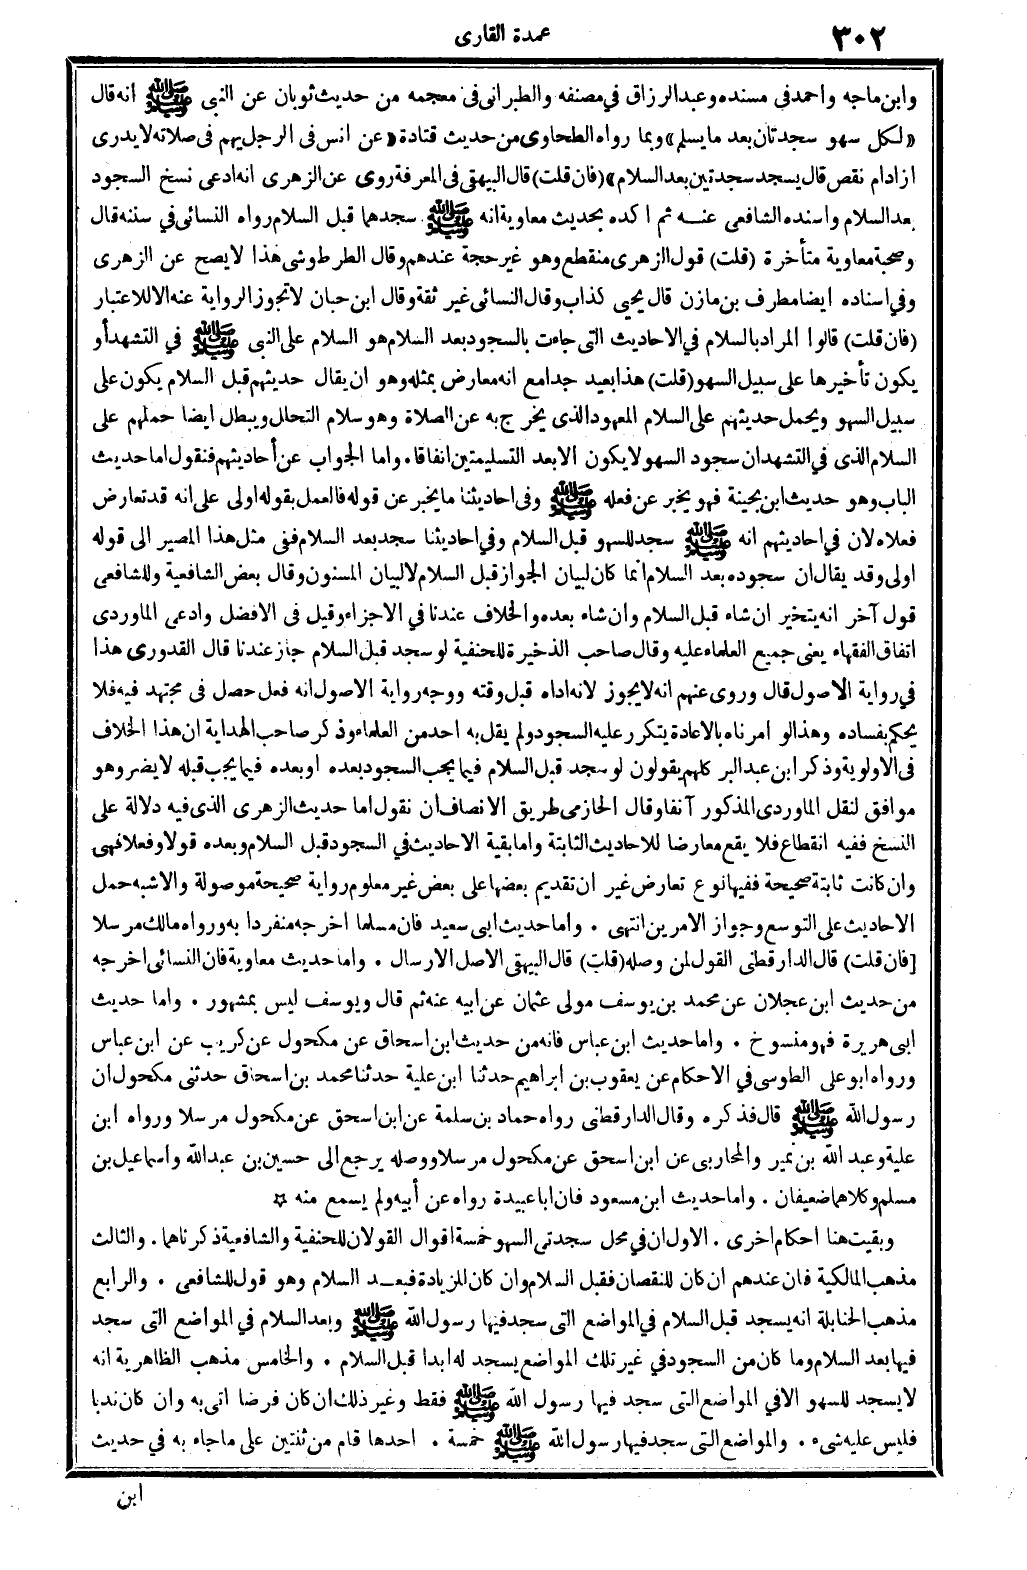 ٣٠٢ عمدة القارى
وابن ماجه واحمد فى مسنده وعبد الرزاق فى مصنفه والطبرانى فى معجمه من حديث ثوبان عن النبى ﷺ انه قال
«لكل سهو سجدتان بعد ما يسلم» وبما رواه الطحاوى من حديث قتادة «عن انس فى الرجل يهم فى صلاته لا يدرى
ازاد ام نقص قال يسجد سجدتين بعد السلام» (فان قلت) قال البيهقى فى المعرفة روى عن الزهرى انه ادعى نسخ السجود
بعد السلام واسنده الشافعى عنه ثم اكده بحديث معاوية انه ﷺ سجدهما قبل السلام رواه النسائى فى سننه قال
وصحبة معاوية متأخرة (قلت) قول الزهرى منقطع وهو غير حجة عندهم وقال الطرطوشى هذا لا يصح عن الزهرى
وفى اسناده ايضا مطرف بن مازن قال يحيى كذاب وقال النسائى غير ثقة وقال ابن حبان لا تجوز الرواية عنه الا للاعتبار
(فان قلت) قالوا المراد بالسلام فى الاحاديث التى جاءت بالسجود بعد السلام هو السلام على النبى ﷺ فى التشهد أو
يكون تأخيرها على سبيل السهو (قلت) هذا بعيد جدا مع انه معارض بمثله وهو ان يقال حديثهم قبل السلام يكون على
سبيل السهو ويحمل حديثهم على السلام المعهود الذى يخرج به عن الصلاة وهو سلام التحلل ويبطل ايضا حملهم على
السلام الذى فى التشهد ان سجود السهو لا يكون الا بعد التسليمتين اتفاقا ه واما الجواب عن أحاديثهم فنقول اما حديث
الباب وهو حديث ابن بحينة فهو يخبر عن فعله ﷺ وفى احاديثنا ما يخبر عن قوله فالعمل بقوله اولى على انه قد تعارض
فعلاه لان فى احاديثهم انه ﷺ سجد للسهو قبل السلام وفى احاديثنا سجد بعد السلام ففى مثل هذا المصير الى قوله
اولى وقد يقال ان سجوده بعد السلام انما كان لبيان الجواز قبل السلام لا لبيان المسنون وقال بعض الشافعية وللشافعى
قول آخر انه يتخير ان شاء قبل السلام وان شاء بعده والخلاف عندنا فى الاجزاء وقيل فى الافضل وادعى الماوردى
اتفاق الفقهاء يعنى جميع العلماء عليه وقال صاحب الذخيرة للحنفية لو سجد قبل السلام جاز عندنا قال القدورى هذا
فى رواية الاصول قال وروى عنهم انه لا يجوز لانه اداه قبل وقته ووجه رواية الاصول انه فعل حصل فى مجتهد فيه فلا
يحكم بفساده وهذا لو امرناه بالاعادة يتكرر عليه السجود ولم يقل به احد من العلماء وذكر صاحب الهداية ان هذا الخلاف
فى الاولوية وذكر ابن عبد البر كلهم يقولون لو سجد قبل السلام فيما يجب السجود بعده او بعده فيما يجب قبله لا يضر وهو
موافق لنقل الماوردى المذكور آنفا وقال الحازمى طريق الانصاف ان نقول اما حديث الزهرى الذى فيه دلالة على
النسخ ففيه انقطاع فلا يقع معارضا للاحاديث الثابتة واما بقية الاحاديث فى السجود قبل السلام وبعده قولا وفعلا فهى
وان كانت ثابتة صحيحة ففيها نوع تعارض غير ان تقديم بعضها على بعض غير معلوم رواية صحيحة موصولة والاشبه حمل
الاحاديث على التوسع وجواز الامرين انتهى . واما حديث ابى سعيد فان مسلما اخرجه منفردا به ورواه مالك مرسلا
[فان قلت) قال الدارقطنى القول لمن وصله (قلت) قال البيهقى الاصل الارسال . واما حديث معاوية فان النسائى اخرجه
من حديث ابن عجلان عن محمد بن يوسف مولى عثمان عن ابيه عنه ثم قال ويوسف ليس بمشهور . واما حديث
ابى هريرة فهو منسوخ . واما حديث ابن عباس فانه من حديث ابن اسحاق عن مكحول عن كريب عن ابن عباس
ورواه ابو على الطوسى فى الاحكام عن يعقوب بن ابراهيم حدثنا ابن علية حدثنا محمد بن اسحاق حدثنى مكحول ان
رسول الله ﷺ قال فذكره وقال الدارقطنى رواه حماد بن سلمة عن ابن اسحق عن مكحول مرسلا ورواه ابن
علية وعبد الله بن نمير والمحاربى عن ابن اسحق عن مكحول مرسلا ووصله يرجع الى حسين بن عبد الله واسماعيل بن
مسلم وكلاهما ضعيفان . واما حديث ابن مسعود فان ابا عبيدة رواه عن أبيه ولم يسمع منه ☆
وبقيت هنا احكام اخرى . الاول ان فى محل سجدتى السهو خمسة اقوال القولان للحنفية والشافعية ذكرناهما . والثالث
مذهب المالكية فان عندهم ان كان للنقصان فقبل السلام وان كان للزيادة فبعد السلام وهو قول للشافعى . والرابع
مذهب الحنابلة انه يسجد قبل السلام فى المواضع التى سجد فيها رسول الله ﷺ وبعد السلام فى المواضع التى سجد
فيها بعد السلام وما كان من السجود فى غير تلك المواضع يسجد له ابدا قبل السلام . والخامس مذهب الظاهرية انه
لا يسجد للسهو الا فى المواضع التى سجد فيها رسول الله ﷺ فقط وغير ذلك ان كان فرضا اتى به وان كان ندبا
فليس عليه شىء . والمواضع التى سجد فيها رسول الله ﷺ خمسة . احدها قام من ثنتين على ما جاء به فى حديث
ابن